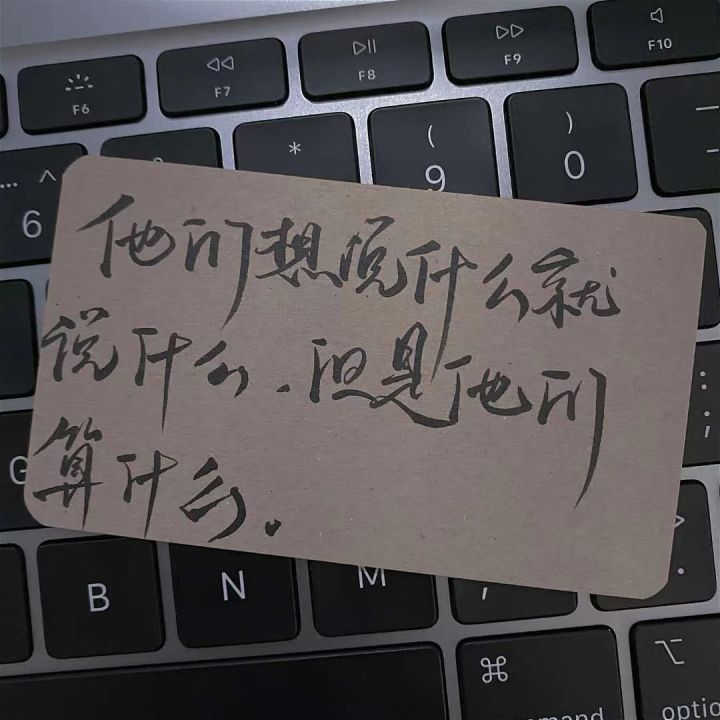 F6
F7
F8
F9
F10
^
6
*
(
9
)
0
他们想说什么就
说什么.但是他们
算什么。
G
:
;
>
.
B
N
M
,
⌘
command
⌥
optio